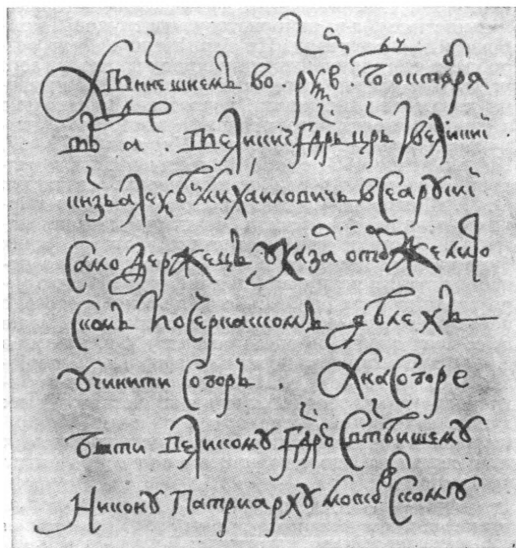 В ннешнемъ во . рѯв . г октебря
въ а . великиі гдрь црь і великиі
кнзь алеѯѣи михаиловичь всеа русиі
самодержецъ указа о литов
скомъ и о черкаскомъ дѣлехъ
учинити соборъ . А на соборе
быти великому гдрю стѣишему
Никону Патриарху московскому